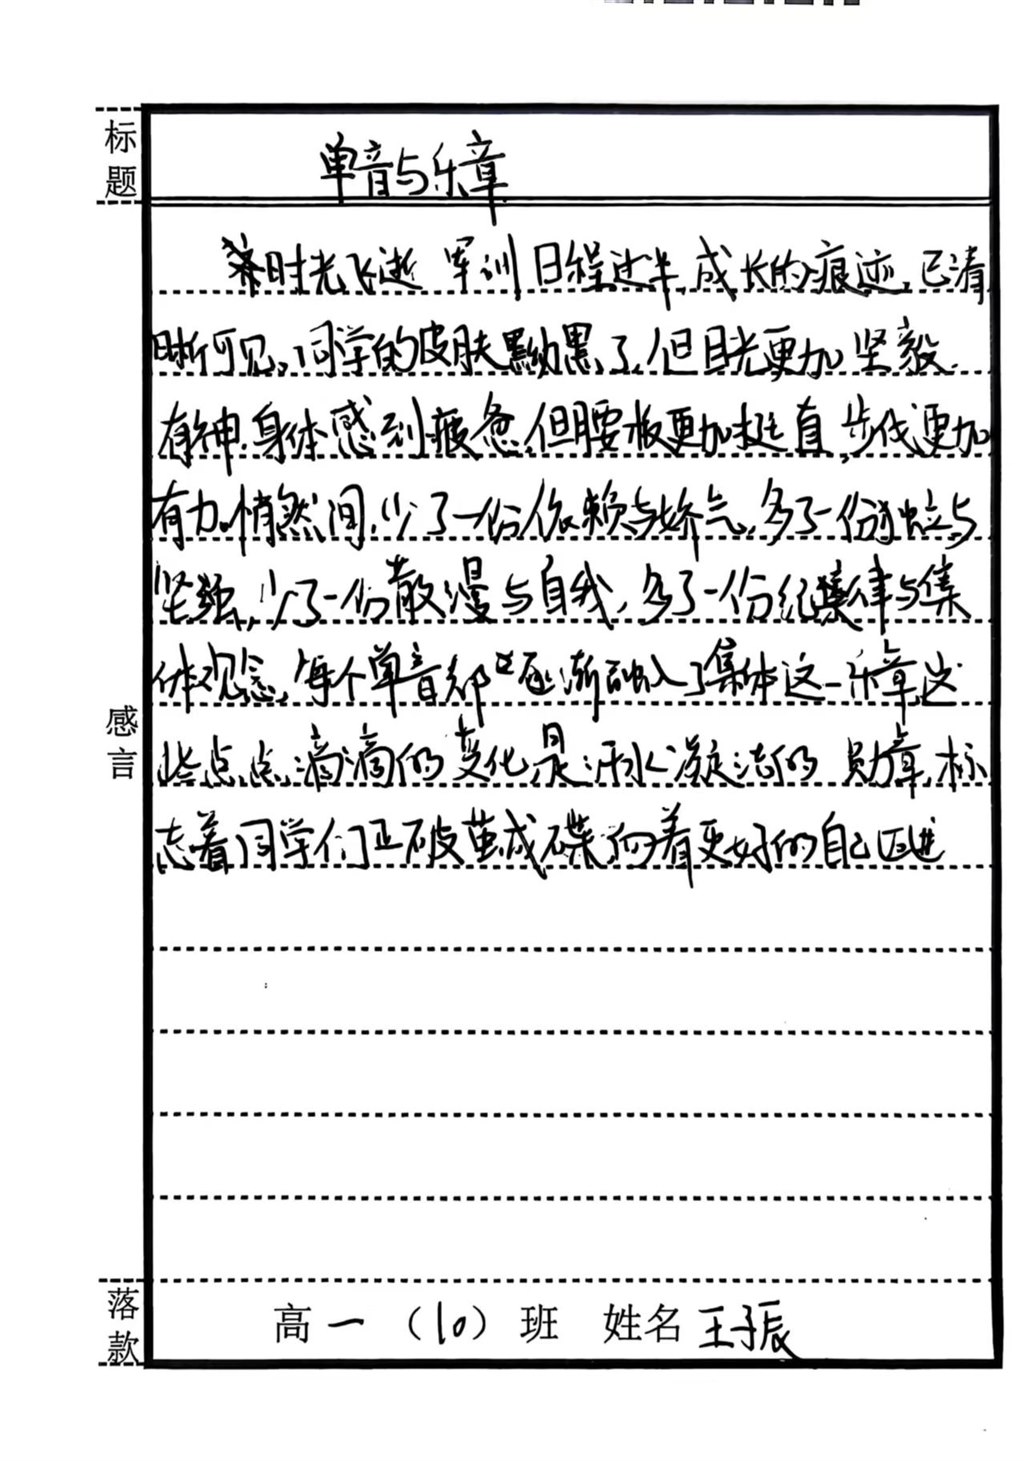 标题
单音与乐章
时光飞逝 军训日程过半,成长的痕迹,已清
晰可见。同学的皮肤黝黑了,但目光更加坚毅
有神.身体感到疲惫,但腰板更加挺直,步伐更加
有力。悄然间,少了一份依赖与娇气,多了一份独立与
坚强,少了一份散漫与自我,多了一份纪律与集
体观念,每个单音都逐渐融入了集体这一乐章,这
些点点滴滴的变化,是汗水凝结的勋章,标
志着同学们正破茧成碟向着更好的自己迈进
感言
落款
高一(10)班 姓名 王子辰